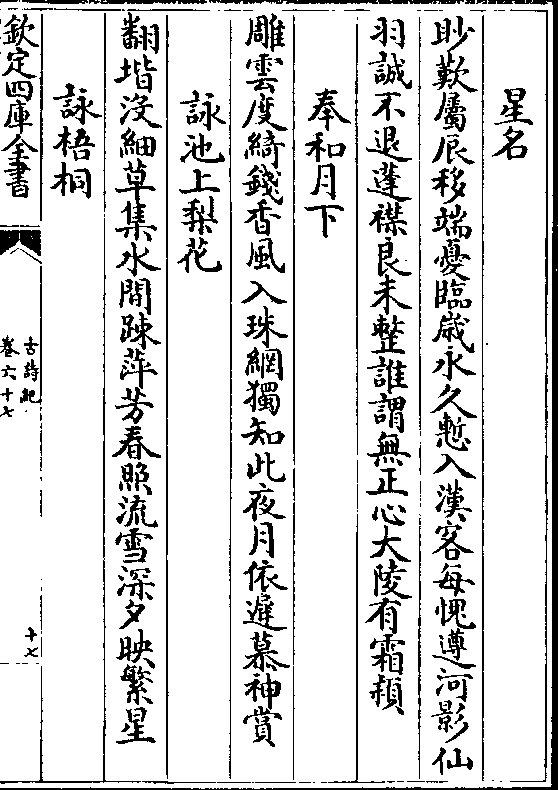 星名
眇歎屬辰移端憂臨歳永久慙入漢客每愧遵河影仙
羽誠不退蓬襟良未整誰謂無正心大陵有霜頴
奉和月下
雕雲度綺錢香風入珠網獨知此夜月依遲慕神賞
詠池上梨花
翻堦没細草集水間踈萍芳春照流雪深夕映繁星
詠梧桐
欽定四庫全書
古詩紀
卷六十七
十七